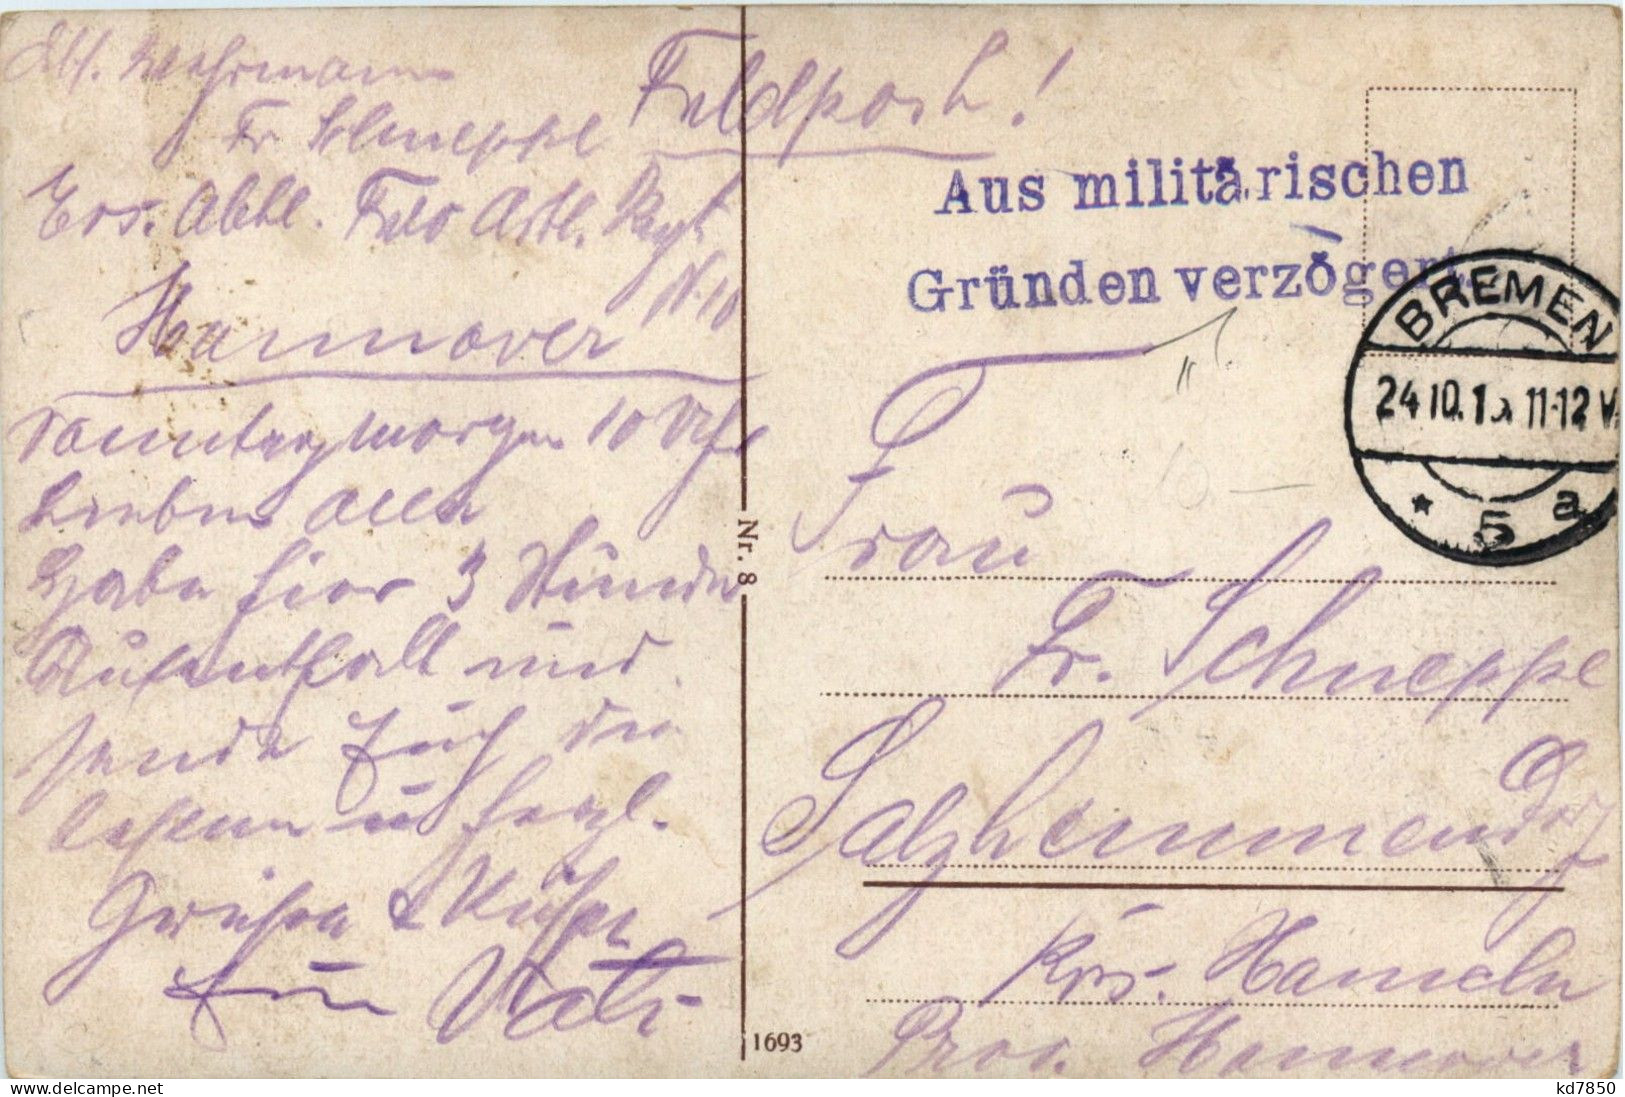 Abs. Wehrmann
Fr Schneppe
Ers. Abtl. Feld Artl. Regt.
N. 10
Hannover
Sonntagmorgen 10 Uhr
Lieben alle
Habe hier 3 Stunden
Aufenthalt und
sende Euch die
besten u herzl.
Grüße & Küße
Euer Vati
Feldpost!
Aus militärischen
Gründen verzögert.
BREMEN
24 10. 11-12 V.
* 5 a
Frau
Fr. Schneppe
Salzhemmendorf
Krs. Hameln
Prov. Hannover
Nr. 8
1693
kd7850